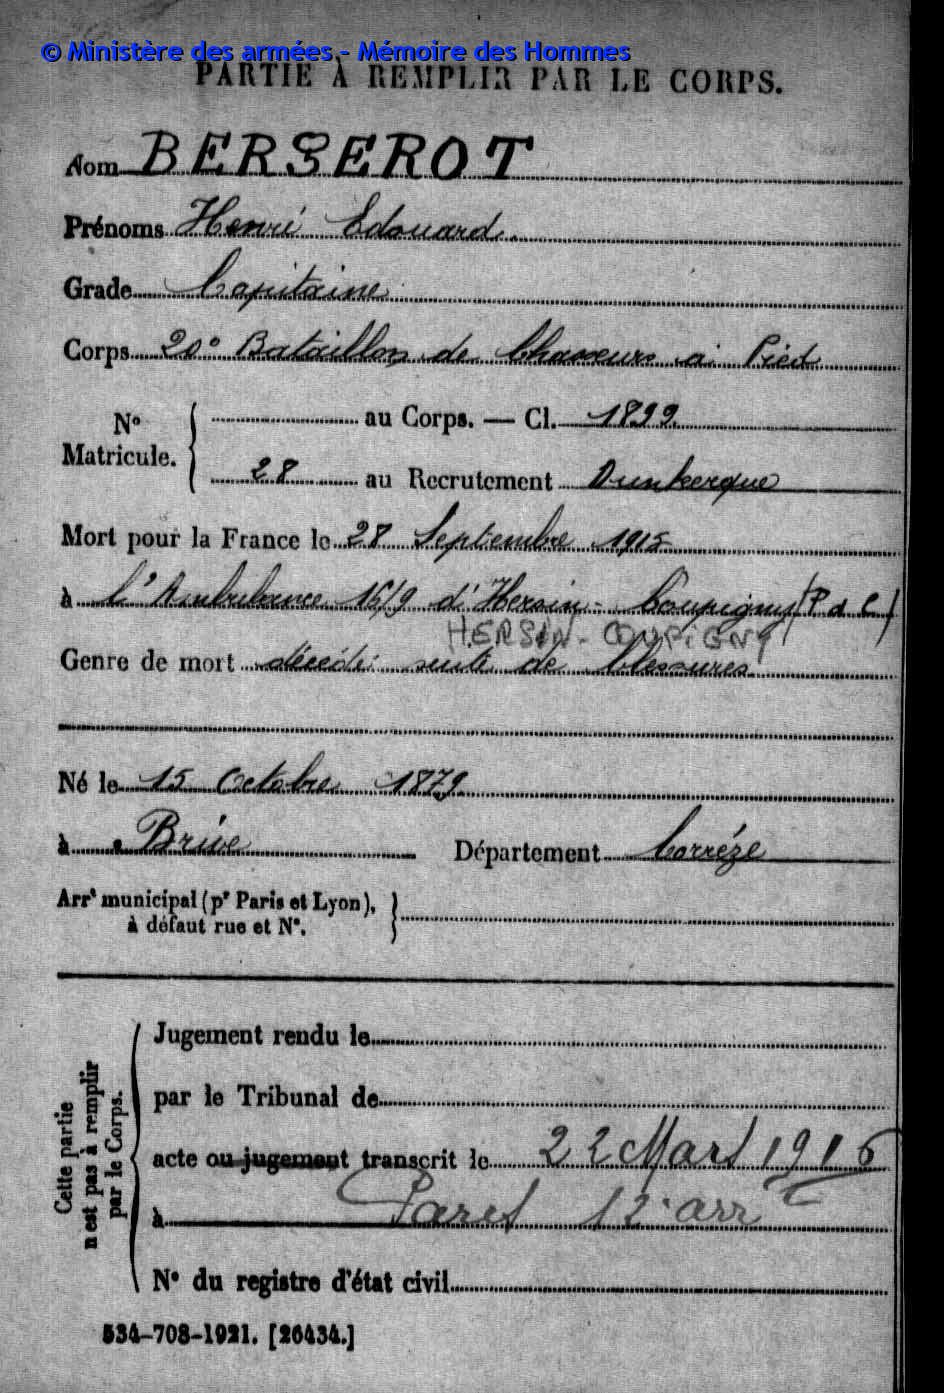 © Ministère des armées - Mémoire des Hommes
PARTIE À REMPLIR PAR LE CORPS.
Nom BERSEROT
Prénoms Henri Edouard.
Grade Capitaine
Corps 20e Bataillon de Chasseurs à Pied
No Matricule. { au Corps. — Cl. 1899.
28 au Recrutement Dunkerque
Mort pour la France le 28 Septembre 1915
à l'Ambulance 15/9 d'Hersin-Coupigny (P d C)
HERSIN-COUPIGNY
Genre de mort décédé suite de blessures
Né le 15 Octobre 1879
à Brive Département Corrèze
Arrt municipal (pr Paris et Lyon), }
à défaut rue et No.
Cette partie n'est pas à remplir par le Corps.
Jugement rendu le
par le Tribunal de
acte ou jugement transcrit le 22 Mars 1916
à Paris 12e arrt
No du registre d'état civil
534-708-1921. [26434.]